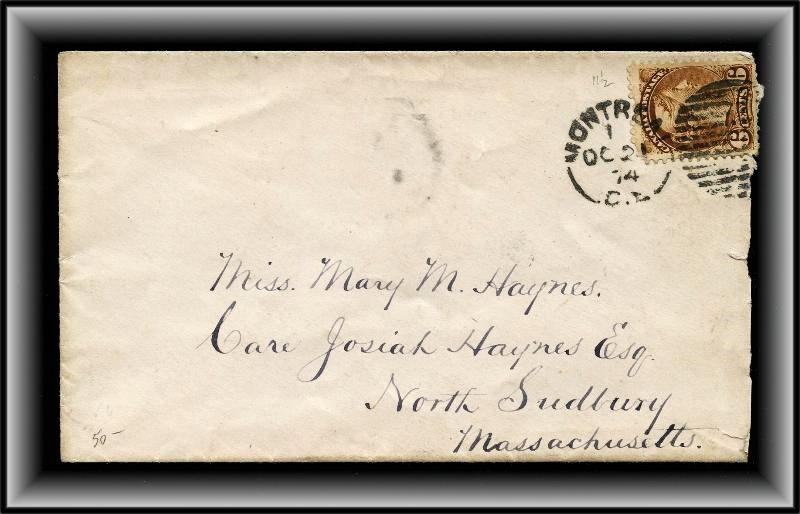 11½
MONTR
1
OC 2
74
C.E
6 CENTS 6
Miss. Mary M. Haynes.
Care Josiah Haynes Esq.
North Sudbury
Massachusetts.
50-